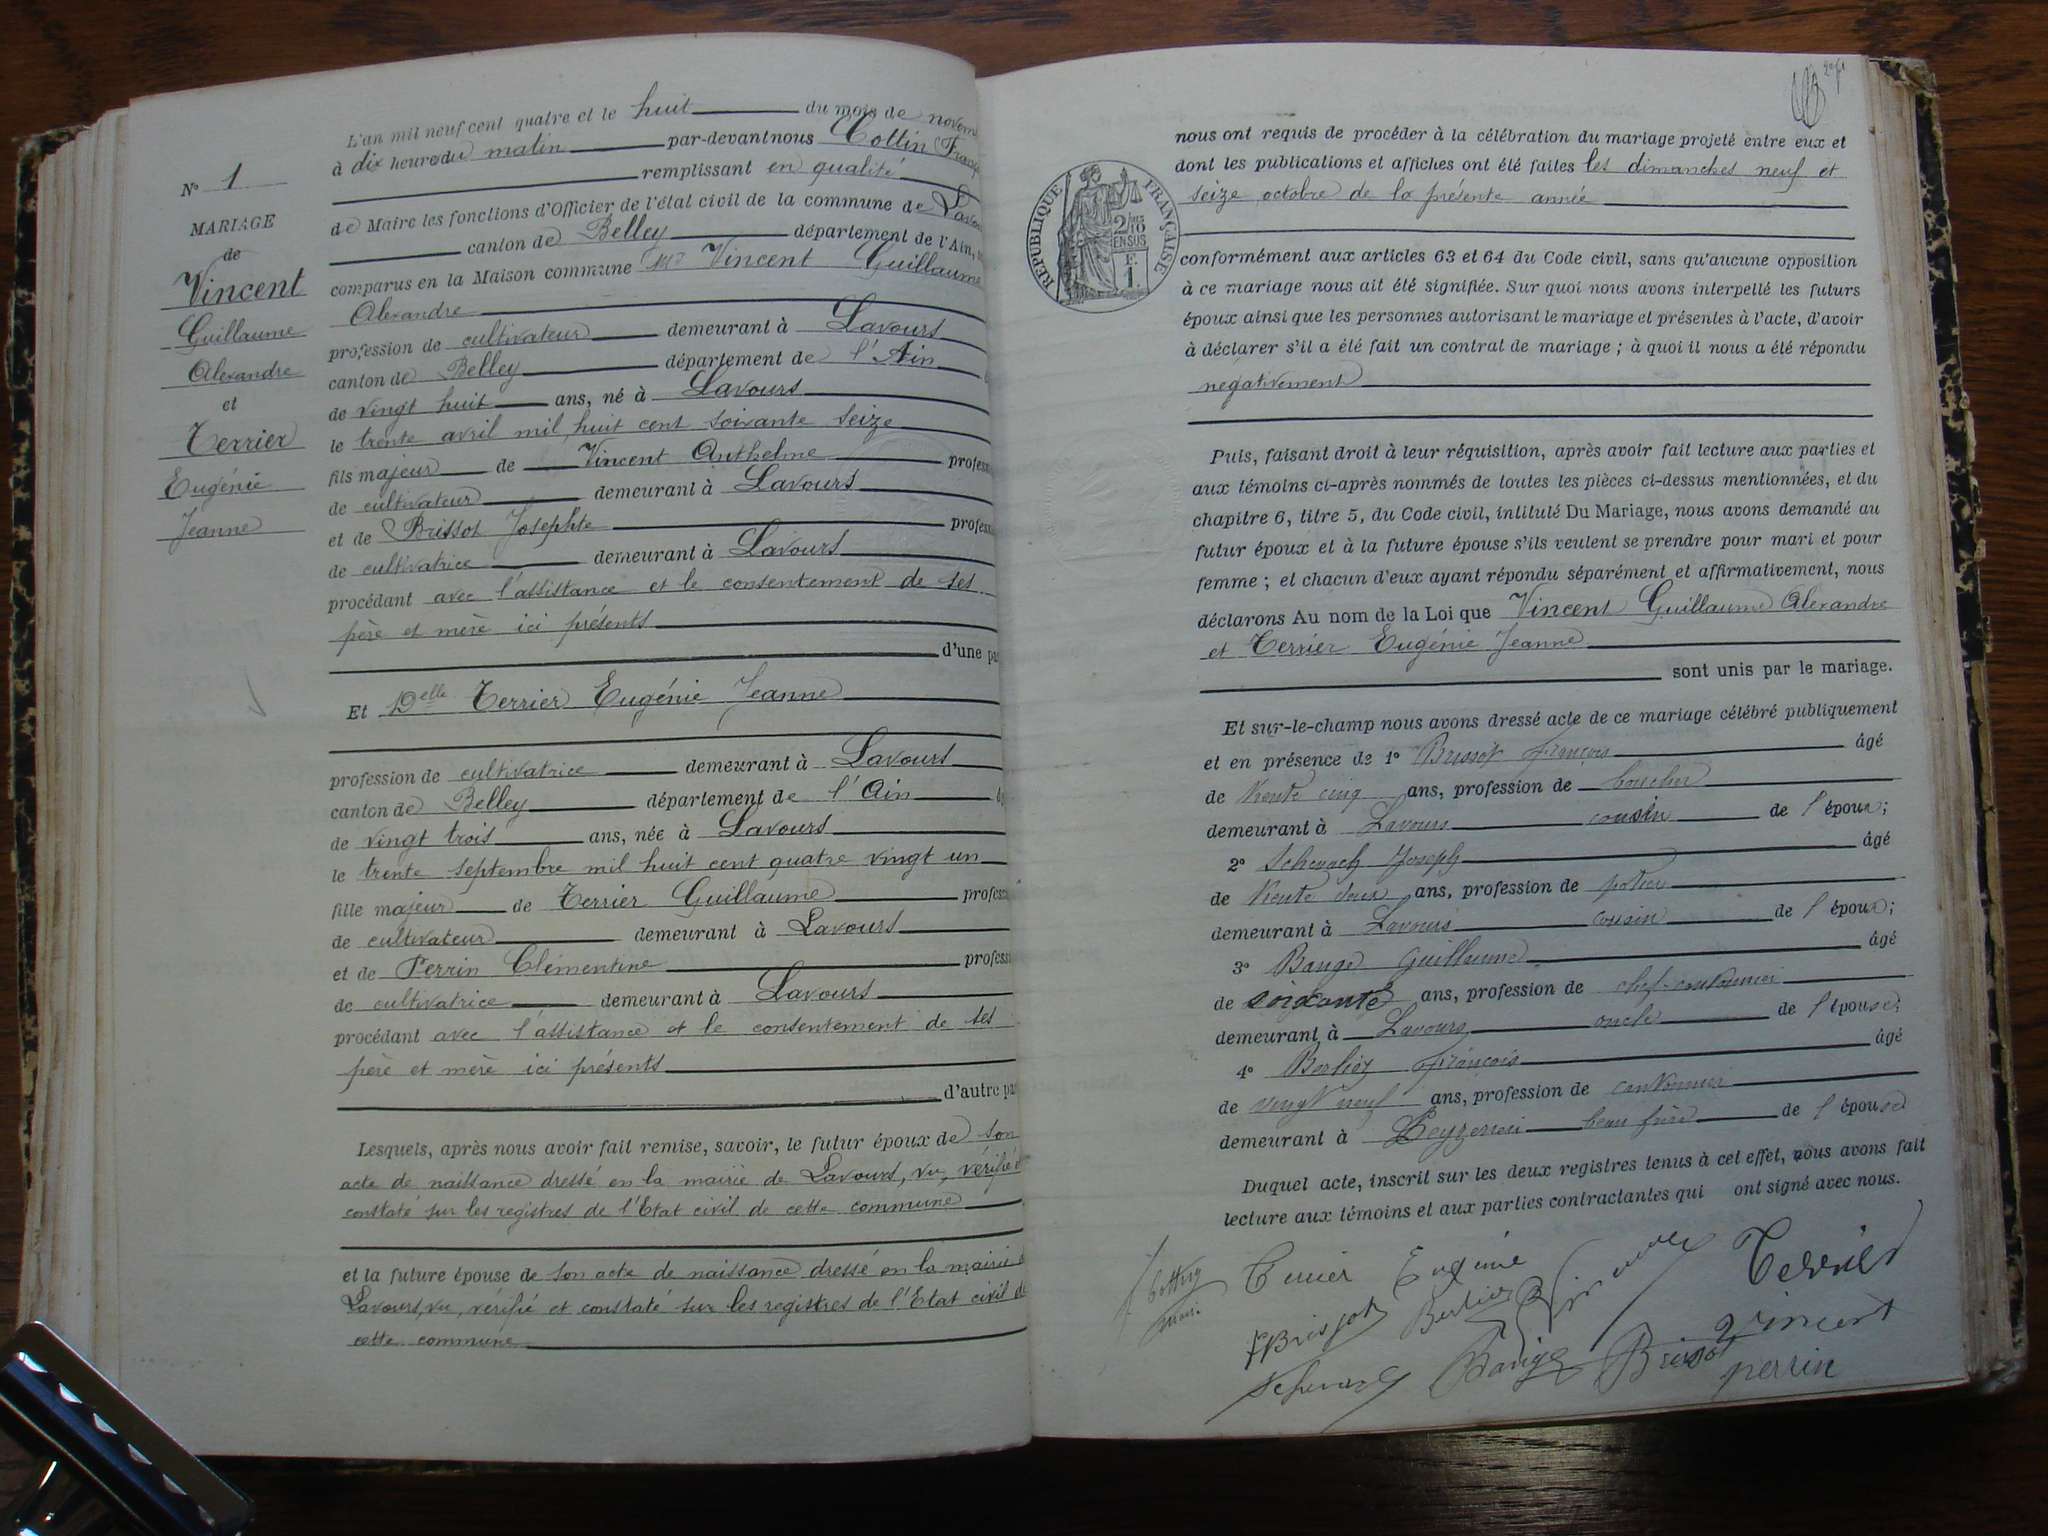 N° 1
MARIAGE
de
Vincent
Guillaume
Alexandre
et
Terrier
Eugénie
Jeanne
L'an mil neuf cent quatre et le huit du mois de novem
à dix heure du matin par-devant nous Cottin Franç
remplissant en qualité
de Maire les fonctions d'Officier de l'état civil de la commune de Lavou
canton de Belley département de l'Ain,
comparus en la Maison commune Mr Vincent Guillaume
Alexandre
profession de cultivateur demeurant à Lavours
canton de Belley département de l'Ain
de vingt huit ans, né à Lavours
le trente avril mil huit cent soixante seize
fils majeur de Vincent Anthelme profess
de cultivateur demeurant à Lavours
et de Brissot Josephte profess
de cultivatrice demeurant à Lavours
procédant avec l'assistance et le consentement de ses
père et mère ici présents
d'une pa
Et Delle Terrier Eugénie Jeanne
profession de cultivatrice demeurant à Lavours
canton de Belley département de l'Ain
de vingt trois ans, née à Lavours
le trente septembre mil huit cent quatre vingt un
fille majeur de Terrier Guillaume profess
de cultivateur demeurant à Lavours
et de Perrin Clémentine profess
de cultivatrice demeurant à Lavours
procédant avec l'assistance et le consentement de ses
père et mère ici présents
d'autre pa
Lesquels, après nous avoir fait remise, savoir, le futur époux de son
acte de naissance dressé en la mairie de Lavours, vu, vérifié et
constaté sur les registres de l'Etat civil de cette commune
et la future épouse de son acte de naissance dressé en la mairie
Lavours, vu, vérifié et constaté sur les registres de l'Etat civil de
cette commune
RÉPUBLIQUE FRANÇAISE
2/10
EN SUS
F.
1.
nous ont requis de procéder à la célébration du mariage projeté entre eux et
dont les publications et affiches ont été faites les dimanches neuf et
seize octobre de la présente année
conformément aux articles 63 et 64 du Code civil, sans qu'aucune opposition
à ce mariage nous ait été signifiée. Sur quoi nous avons interpellé les futurs
époux ainsi que les personnes autorisant le mariage et présentes à l'acte, d'avoir
à déclarer s'il a été fait un contrat de mariage ; à quoi il nous a été répondu
negativement
Puis, faisant droit à leur réquisition, après avoir fait lecture aux parties et
aux témoins ci-après nommés de toutes les pièces ci-dessus mentionnées, et du
chapitre 6, titre 5, du Code civil, intitulé Du Mariage, nous avons demandé au
futur époux et à la future épouse s'ils veulent se prendre pour mari et pour
femme ; et chacun d'eux ayant répondu séparément et affirmativement, nous
déclarons Au nom de la Loi que Vincent Guillaume Alexandre
et Terrier Eugénie Jeanne
sont unis par le mariage.
Et sur-le-champ nous avons dressé acte de ce mariage célébré publiquement
et en présence de 1° Brissot François âgé
de trente cinq ans, profession de boucher
demeurant à Lavours cousin de l'époux;
2° Schenach Joseph âgé
de trente deux ans, profession de potier
demeurant à Lavours cousin de l'époux;
3° Bauge Guillaume âgé
de soixante ans, profession de chef-cantonnier
demeurant à Lavours oncle de l'épouse;
4° Berlioz François âgé
de vingt neuf ans, profession de cantonnier
demeurant à Peyzerieu beau frère de l'épouse
Duquel acte, inscrit sur les deux registres tenus à cet effet, nous avons fait
lecture aux témoins et aux parties contractantes qui ont signé avec nous.
Terrier Eugénie
Terrier
Cottin
maire
F Brissot
Berlioz
Vincent
Schenach
Bauge
Brissot
perrin